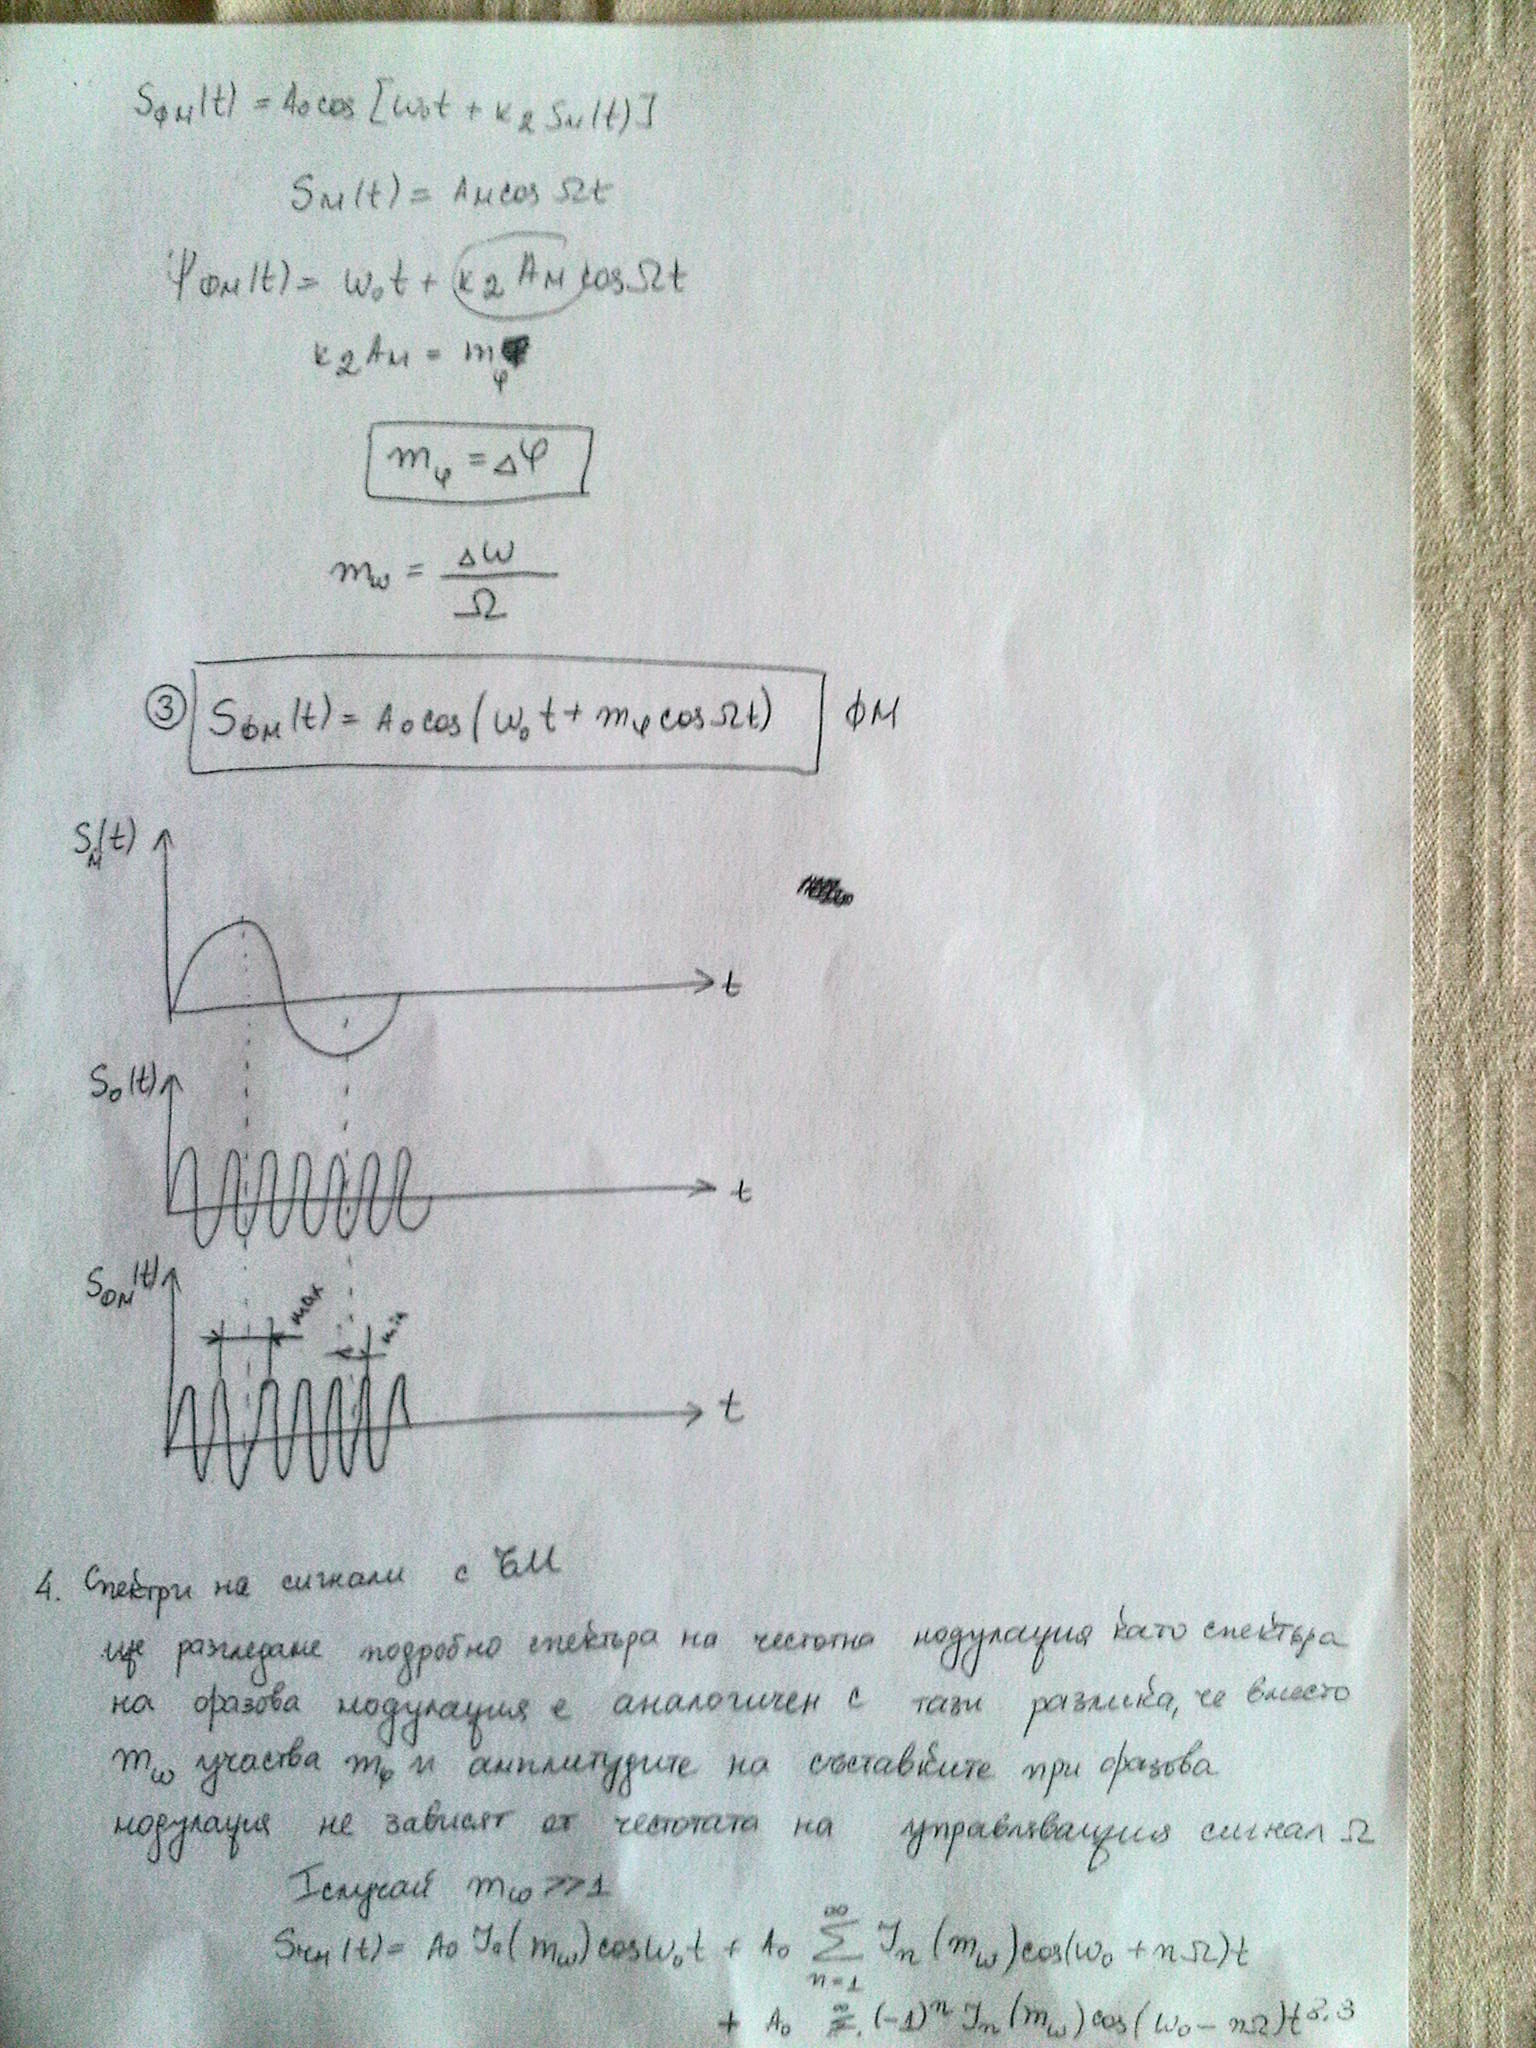 SФМ(t) = A₀cos [ω₀t + к₂ Sм(t)]
Sм(t) = Aмcos Ωt
ΨФМ(t) = ω₀t + к₂ Aм cosΩt
к₂Aм = mφ
mφ = Δφ
mω = Δω / Ω
③ SФМ(t) = A₀cos(ω₀t + mφ cosΩt) ФМ
Sм(t)
t
S₀(t)
t
SФМ(t)
max
min
t
4. Спектри на сигнали с ЪМ
ще разгледаме подробно спектъра на честотна модулация като спектъра
на фазова модулация е аналогичен с тази разлика, че вместо
mω участва mφ и амплитудите на съставките при фазова
модулация не зависят от честотата на управляващия сигнал Ω
I случай mω >> 1
SЧМ(t) = A₀ J₀(mω)cosω₀t + A₀ ∑ₙ₌₁^∞ Jₙ(mω)cos(ω₀ + nΩ)t
+ A₀ ∑^∞ (-1)ⁿ Jₙ(mω)cos(ω₀ - nΩ)t 3.3